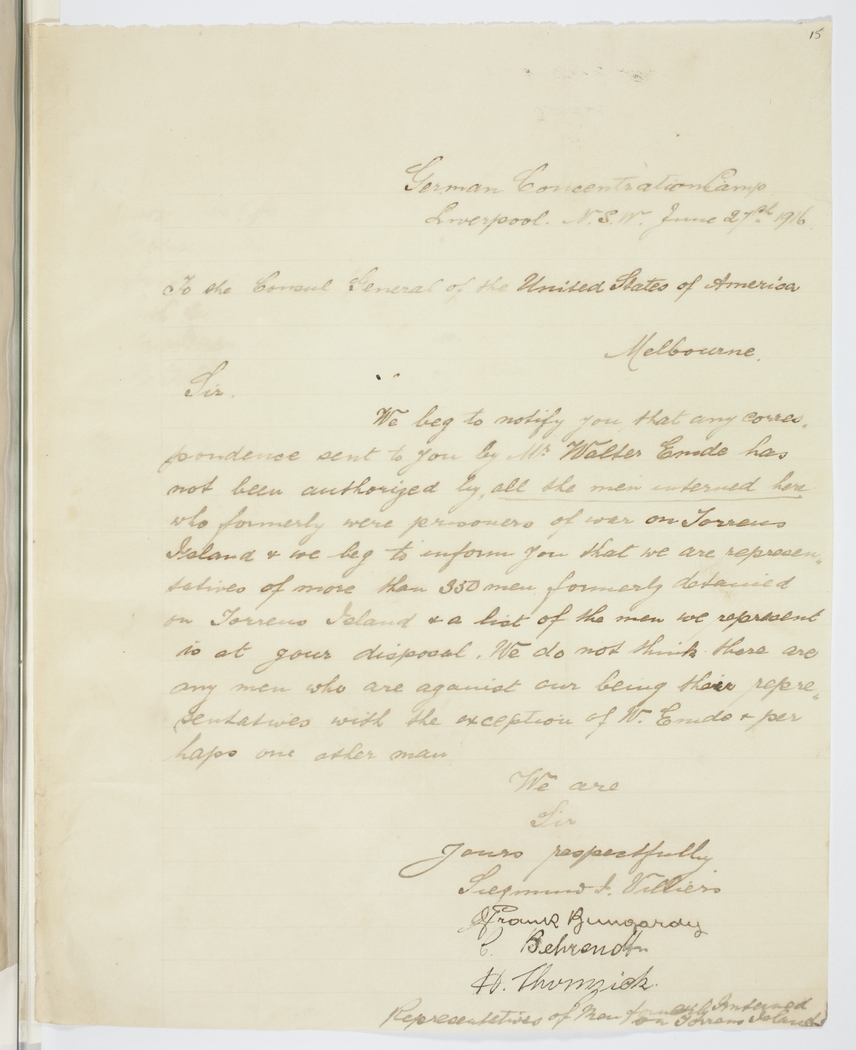 15
German Concentration Camp
Liverpool. N.S.W. June 27th 1916
To the Consul General of the United States of America
Melbourne.
Sir.
We beg to notify you, that any corres,
pondence sent to you by Mr Walter Emde has
not been authorized by, all the men interned here
who formerly were prisoners of war on Torrens
Island & we beg to inform you that we are represen,,
tatives of more than 330 men formerly detained
on Torrens Island & a list of the men we represent
is at your disposal. We do not think there are
any men who are against our being their repre,,
sentatives with the exception of W. Emde & per
haps one other man
We are
Sir
Yours respectfully
Siegmund J. Villiers
Frank Bungardy
C. Behrendt
H. Thomzick.
Representatives of Men formerly Interned
on Torrens Island